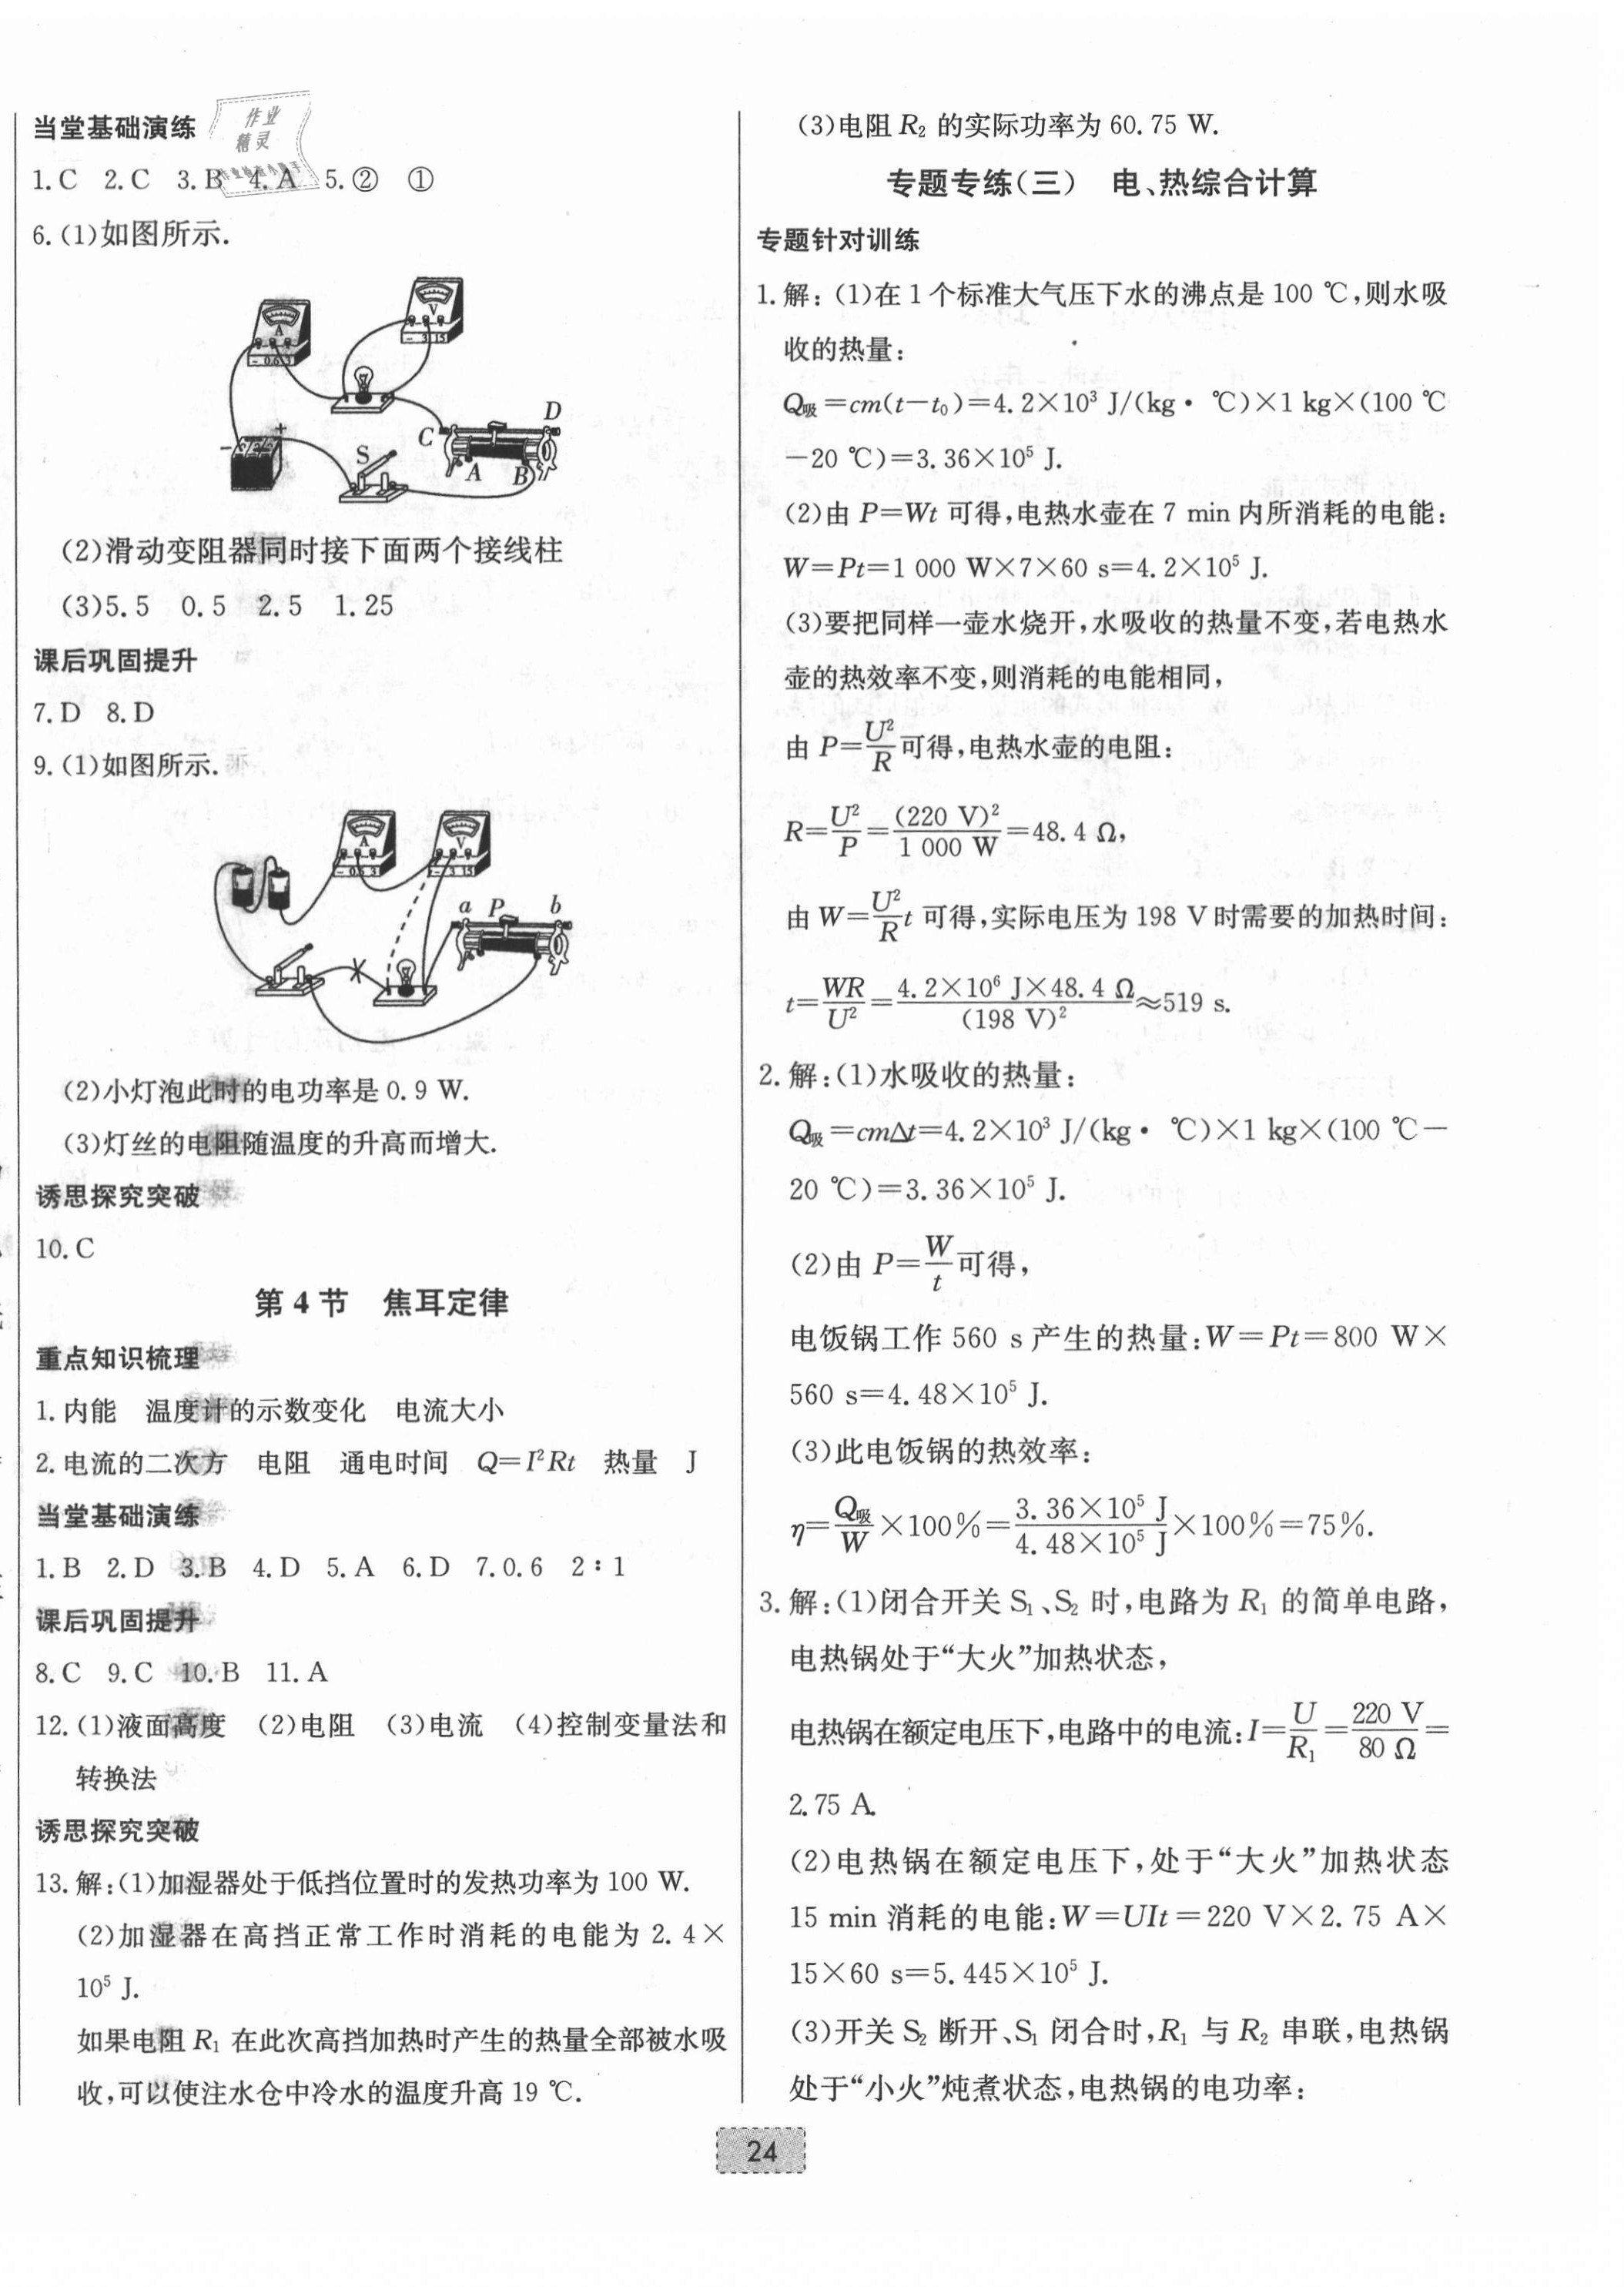 当堂基础演练
作业
精灵
1.C 2.C 3.B 4.A 5.② ①
6.(1)如图所示.
A
- 0.6 3
V
- 3 15
- +
S
C
D
A B
(2)滑动变阻器同时接下面两个接线柱
(3)5.5 0.5 2.5 1.25
课后巩固提升
7.D 8.D
9.(1)如图所示.
A
- 0.6 3
V
- 3 15
a P b
(2)小灯泡此时的电功率是0.9 W.
(3)灯丝的电阻随温度的升高而增大.
诱思探究突破
10.C
第4节 焦耳定律
重点知识梳理
1.内能 温度计的示数变化 电流大小
2.电流的二次方 电阻 通电时间 Q=I²Rt 热量 J
当堂基础演练
1.B 2.D 3.B 4.D 5.A 6.D 7.0.6 2∶1
课后巩固提升
8.C 9.C 10.B 11.A
12.(1)液面高度 (2)电阻 (3)电流 (4)控制变量法和
转换法
诱思探究突破
13.解:(1)加湿器处于低挡位置时的发热功率为100 W.
(2)加湿器在高挡正常工作时消耗的电能为2.4×
10⁵ J.
如果电阻R₁在此次高挡加热时产生的热量全部被水吸
收,可以使注水仓中冷水的温度升高19 ℃.
(3)电阻R₂的实际功率为60.75 W.
专题专练(三) 电、热综合计算
专题针对训练
1.解:(1)在1个标准大气压下水的沸点是100 ℃,则水吸
收的热量:
Q吸=cm(t-t₀)=4.2×10³ J/(kg· ℃)×1 kg×(100 ℃
-20 ℃)=3.36×10⁵ J.
(2)由P=Wt可得,电热水壶在7 min内所消耗的电能:
W=Pt=1 000 W×7×60 s=4.2×10⁵ J.
(3)要把同样一壶水烧开,水吸收的热量不变,若电热水
壶的热效率不变,则消耗的电能相同,
由P=U²/R可得,电热水壶的电阻:
R=U²/P=(220 V)²/1 000 W=48.4 Ω,
由W=U²/R t可得,实际电压为198 V时需要的加热时间:
t=WR/U²=4.2×10⁶ J×48.4 Ω/(198 V)²≈519 s.
2.解:(1)水吸收的热量:
Q吸=cmΔt=4.2×10³ J/(kg· ℃)×1 kg×(100 ℃-
20 ℃)=3.36×10⁵ J.
(2)由P=W/t可得,
电饭锅工作560 s产生的热量:W=Pt=800 W×
560 s=4.48×10⁵ J.
(3)此电饭锅的热效率:
η=Q吸/W×100%=3.36×10⁵ J/4.48×10⁵ J×100%=75%.
3.解:(1)闭合开关S₁、S₂时,电路为R₁的简单电路,
电热锅处于“大火”加热状态,
电热锅在额定电压下,电路中的电流:I=U/R₁=220 V/80 Ω=
2.75 A.
(2)电热锅在额定电压下,处于“大火”加热状态
15 min消耗的电能:W=UIt=220 V×2.75 A×
15×60 s=5.445×10⁵ J.
(3)开关S₂断开、S₁闭合时,R₁与R₂串联,电热锅
处于“小火”炖煮状态,电热锅的电功率:
24